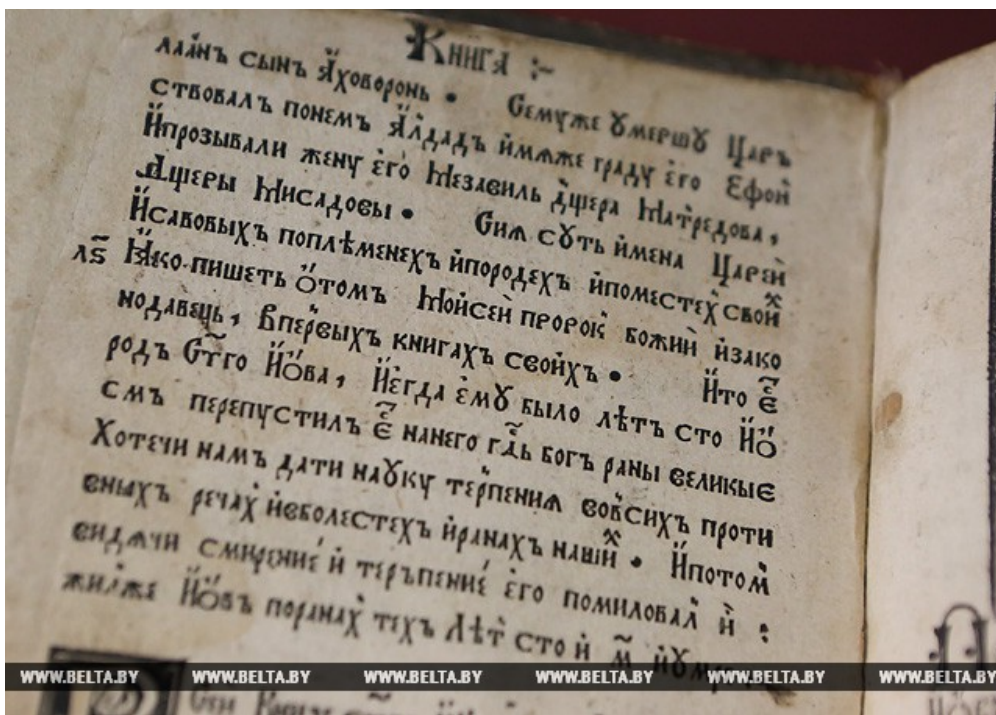 Книга :~
лаанъ сынъ а҆ховоронь • Семуже ꙋмершꙋ царъ
ствовалъ понемъ А҆лдадъ и҆мѧже граду его Ефои҆
И҆прозывали жену его̀ Мезавиль дщера Матредова,
дщеры Мисадовы • Сиѧ сꙋть и҆мена царей
И҆савовыхъ поплѣменехъ и҆породехъ и҆поместехъ свои̾ⷯ
лѕ҃ Ꙗ҆ко пишеть ѻ҆томъ Мои҆сей пророк божии и҆зако
нодавець, впервыхъ книгахъ свои҆хъ • И҆то е҃
родъ Ст҃го И҆ѻва, И҆егда емꙋ было лѣтъ сто И҆ѻ
смъ перепустилъ е҃ нанего гд҃ь богъ раны великые
Хотечи намъ дати наꙋку терпениѧ вовсихъ проти
вныхъ речах и҆вболестехъ и҆ранахъ наши̾ⷯ • И҆потом
видѧчи смирение и҆ теръпение его помиловал и҆ :
жилже И҆ѻвъ поранах техъ лѣт сто и҆ м҃
WWW.BELTA.BY WWW.BELTA.BY WWW.BELTA.BY WWW.BELTA.BY WWW.BELTA.BY WWW.BELTA.BY